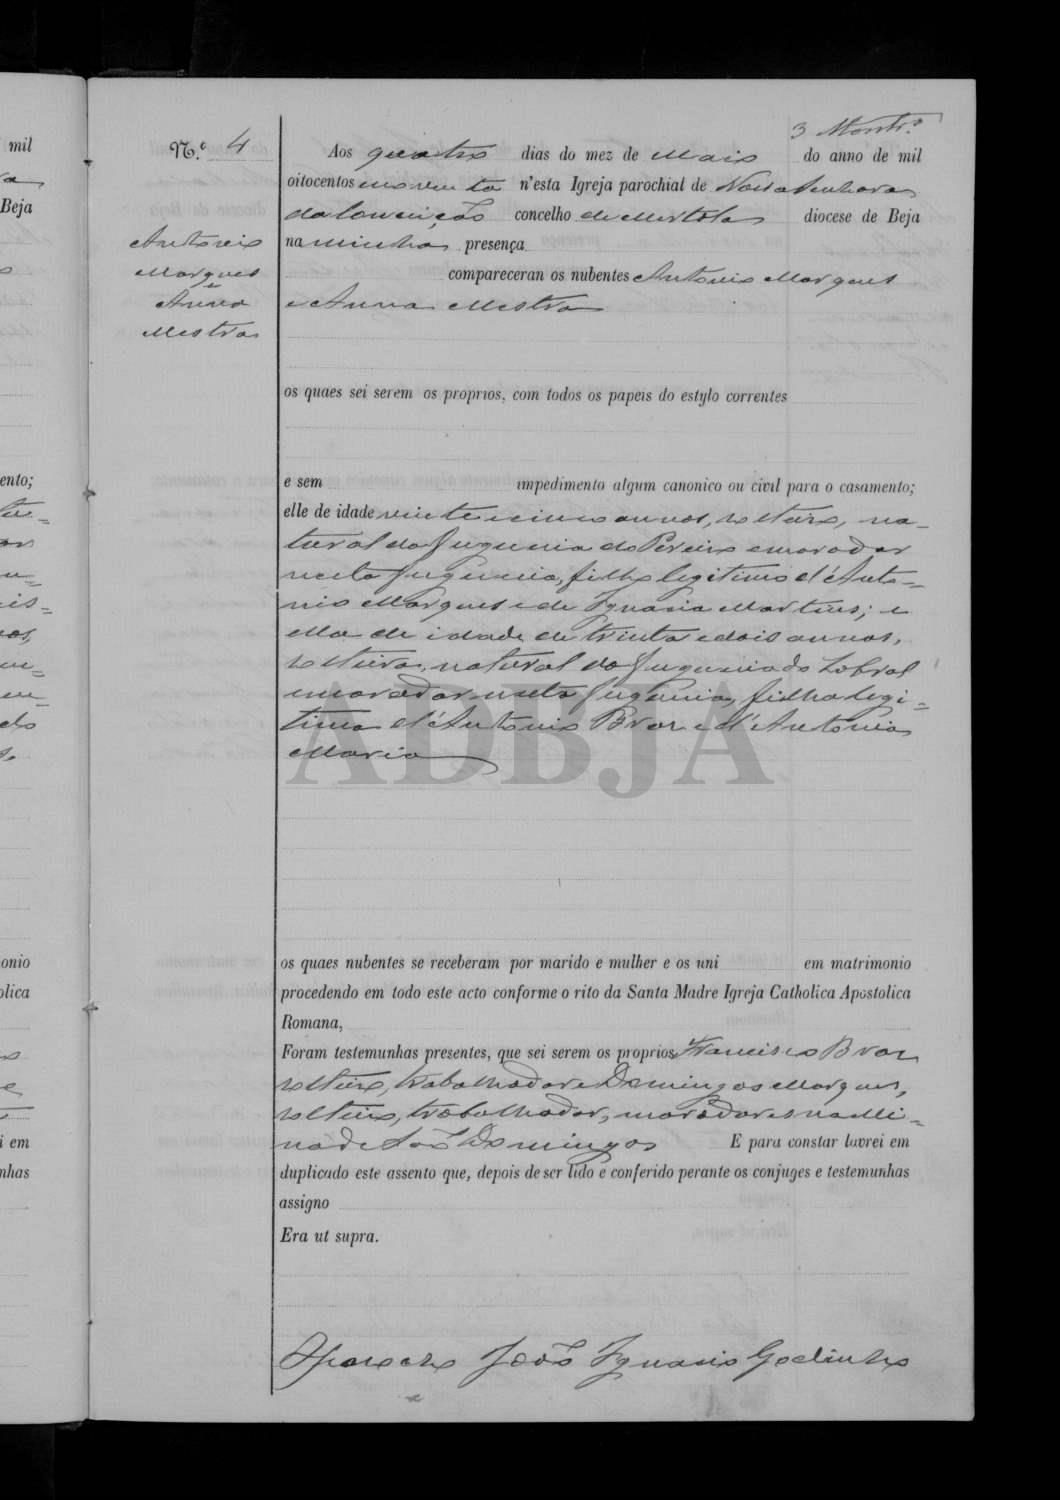 3 Montr.º
N.º 4
Aos quatro dias do mez de Maio do anno de mil
oitocentos noventa n'esta Igreja parochial de Nossa Senhora
da Conceição concelho de Mertola diocese de Beja
na minha presença
compareceran os nubentes Antonio Marques
e Anna Mestra
Antonio
Marques
e
Anna
Mestra
os quaes sei serem os proprios, com todos os papeis do estylo correntes
e sem impedimento algum canonico ou civil para o casamento;
elle de idade vinte e cinco annos, solteiro, na-
tural da freguezia do Pereiro e morador
nesta freguezia, filho legitimo d'Anto=
nio Marques e de Ignacia Martins; e
ella de idade de trinta e dois annos,
solteira, natural da freguezia do Sobral
e moradora nesta freguezia, filha legi=
tima d'Antonio Braz e d'Antonia
Maria
ADBJA
os quaes nubentes se receberam por marido e mulher e os uni em matrimonio
procedendo em todo este acto conforme o rito da Santa Madre Igreja Catholica Apostolica
Romana,
Foram testemunhas presentes, que sei serem os proprios Francisco Braz
solteiro, trabalhador e Domingos Marques,
solteiro, trabalhador, moradores na Mi=
na de São Domingos E para constar lavrei em
duplicado este assento que, depois de ser lido e conferido perante os conjuges e testemunhas
assigno
Era ut supra.
O parocho João Ignacio Godinho
mil
Beja
ento;
onio
olica
i em
nhas